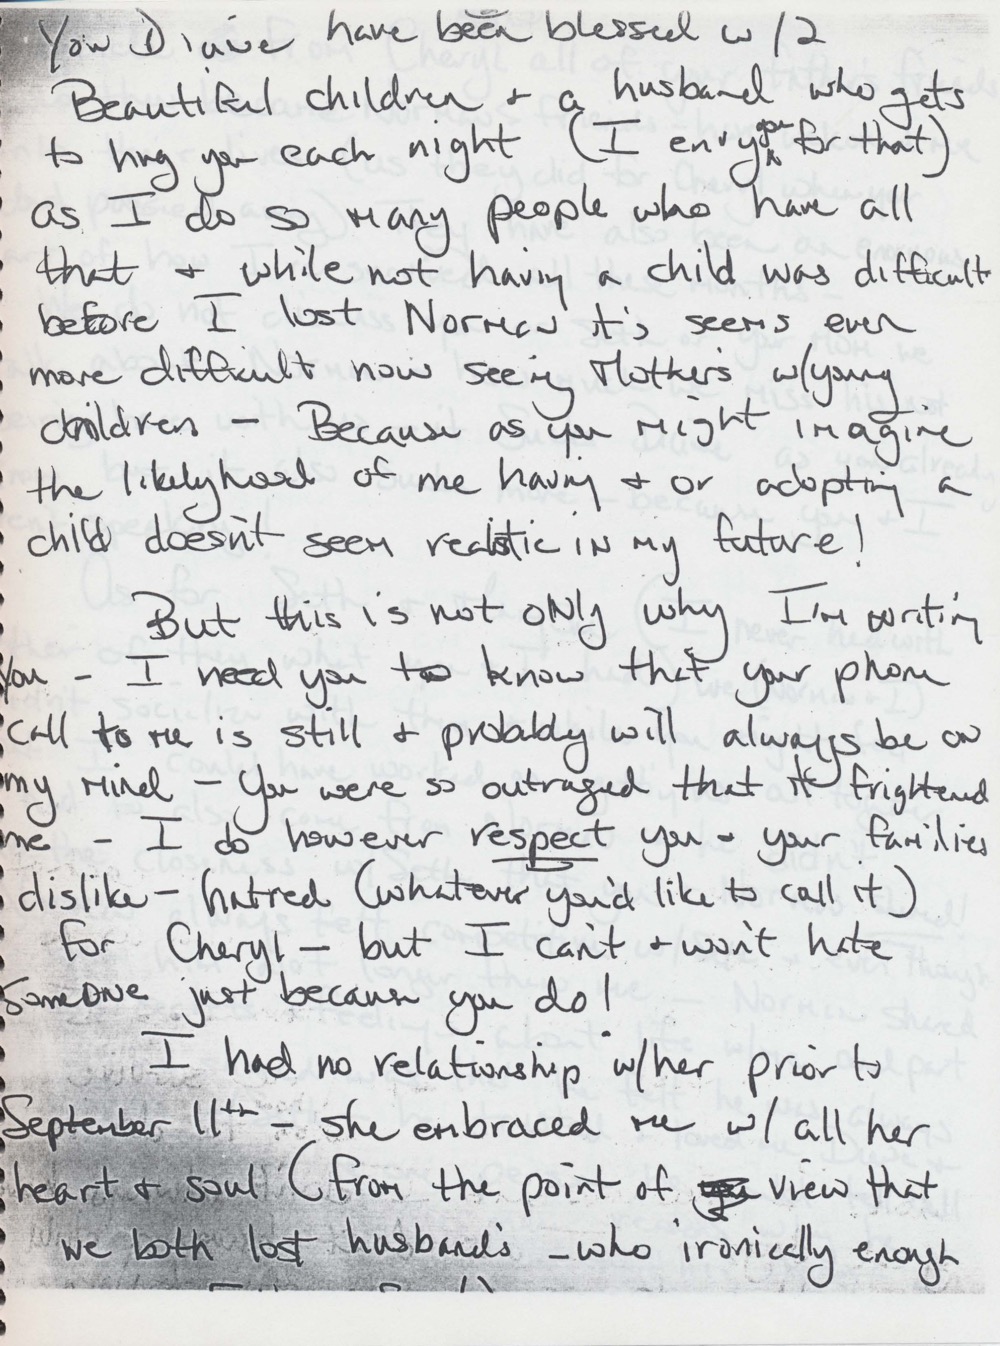 You Diane have been blessed w/2
Beautiful children + a husband who gets
to hug you each night (I envy you for that)
as I do so many people who have all
that + while not having a child was difficult
before I lost Norman it's seems even
more difficult now seeing Mothers w/young
children - Because as you might imagine
the likelyhood of me having + or adopting a
child doesn't seem realistic in my future!
But this is not only why I'm writing
You - I need you to know that your phone
call to me is still + probably will always be on
my mind - You were so outraged that it frightened
me - I do however respect you + your families
dislike - hatred (whatever you'd like to call it)
for Cheryl - but I can't + won't hate
someone just because you do!
I had no relationship w/her prior to
September 11th - she embraced me w/ all her
heart + soul (from the point of view that
we both lost husband's - who ironically enough